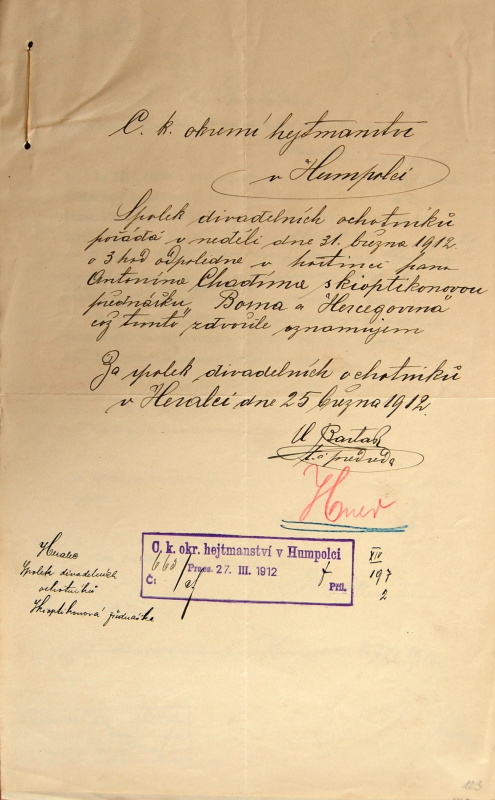 C. k. okresní hejtmanství
v Humpolci
Spolek divadelních ochotníků
pořádá v neděli dne 31. března 1912.
o 3 hod odpoledne v hostinci pana
Antonína Chadima skioptikonovou
přednášku „Bosna a Hercegovina“
což tímto zdvořile oznamujem
Za spolek divadelních ochotníků
v Heralci dne 25 března 1912.
předseda
C. k. okr. hejtmanství v Humpolci
Praes. 27. III. 1912
Č:
Příl.
XIV
197
2
Heralec
Spolek divadelních
ochotníků
Skioptikonová přednáška
123